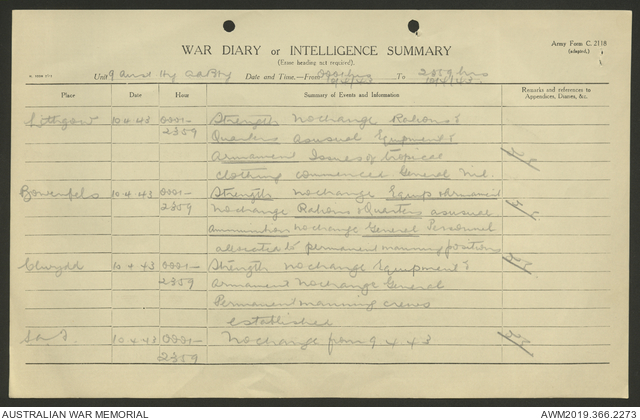 Army Form C. 2118
(adapted.)
WAR DIARY or INTELLIGENCE SUMMARY
(Erase heading not required).
Unit 9 Aust Hy AA Bty Date and Time—From 0001 hrs 10/4/43 To 2359 hrs 10/4/43.
Place Date Hour Summary of Events and Information Remarks and references to Appendices, Diaries, &c.
Lithgow 10.4.43 0001- Strength No change Rations &
2359 Quarters as usual Equipment &
Armament Issues of tropical
clothing commenced General Nil.
Bowenfels 10.4.43 0001- Strength No change Equip & Armament
2359 No change Rations & Quarters as usual
Ammunition No change General Personnel
allocated to permanent manning positions
Clwydd 10.4.43 0001- Strength No change Equipment &
2359 Armament No change General
Permanent manning crews
established
10.4.43 0001- No change from 9.4.43
2359
AUSTRALIAN WAR MEMORIAL AWM2019.366.2273